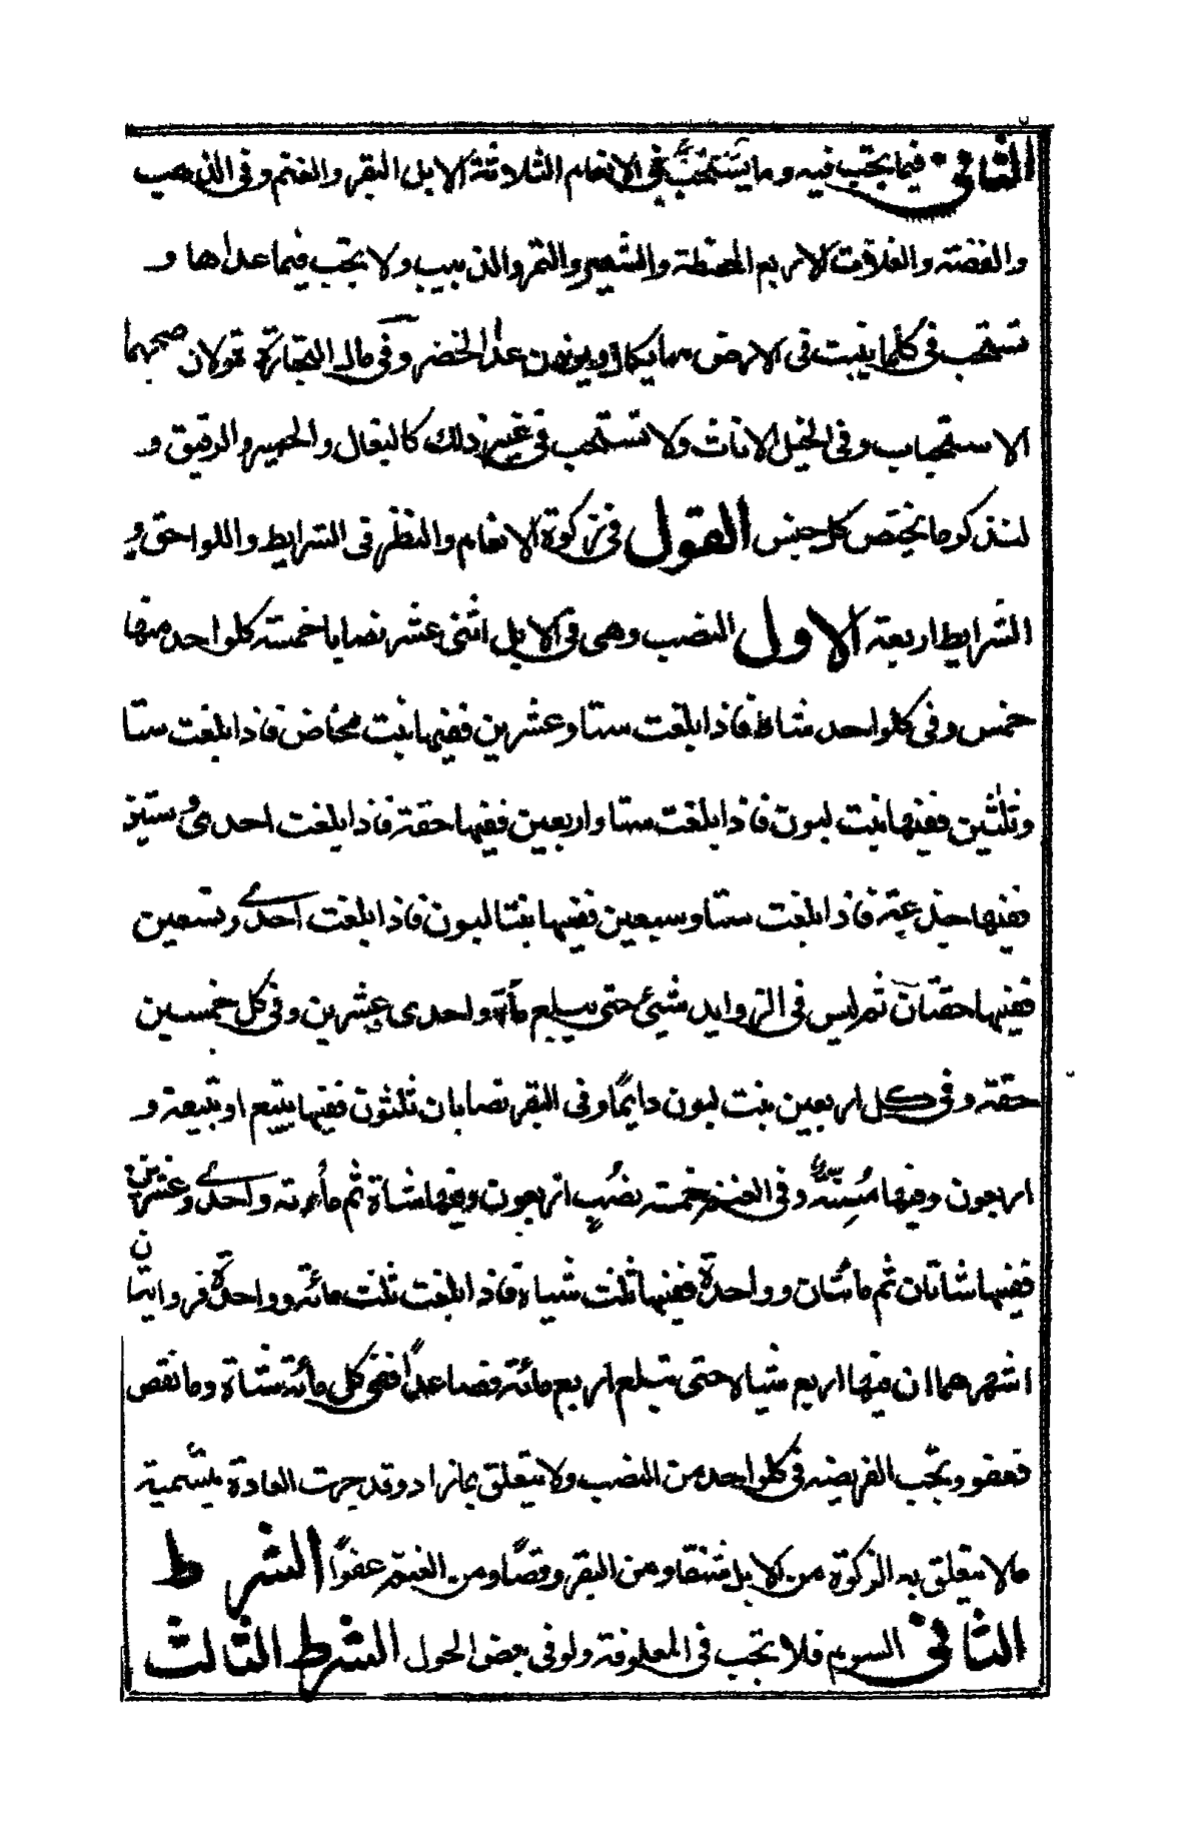 الثاني فيما يجب فيه وما يستحب تجب في الانعام الثلاثة الابل البقر والغنم وفي الذهب
والفضة والغلات الاربع الحنطة والشعير والتمر والزبيب ولا يجب فيما عداها و
تستحب في كلما ينبت في الارض مما يكال ويوزن عدا الخضر وفي مال التجارة قولان صحهما
الاستحباب وفي الخيل الاناث ولا تستحب في غير ذلك كالبغال والحمير والرقيق و
لنذكر ما يختص كل جنس القول في زكوة الانعام والنظر في الشرايط واللواحق و
الشرايط اربعة الاول النصب وهي في الابل اثنى عشر نصابا خمسة كلواحد منها
خمس وفي كلواحد شاة فاذا بلغت ستا وعشرين ففيها بنت مخاض فاذا بلغت ستا
وثلثين ففيها بنت لبون فاذا بلغت ستا واربعين ففيها حقة فاذا بلغت احدى وستين
ففيها جذعة فاذا بلغت ستا وسبعين ففيها بنتا لبون فاذا بلغت احدى وتسعين
ففيها حقتان ثم ليس في الزوايد شيئ حتى يبلغ مأة واحدى عشرين وفي كل خمسين
حقة وفي كل اربعين بنت لبون دايمًا وفي البقر نصابان ثلثون ففيها تبيع او تبيعة و
اربعون وفيها مُسِنّة وفي الغنم خمسة نصُب اربعون وفيها شاة ثم مأة واحدى وعشرين
ففيها شاتان ثم مأتان وواحدة ففيها ثلث شياة فاذا بلغت ثلث مائة وواحدة فروايتان
اشهرهما ان فيها اربع شياه حتى تبلغ اربع مائة فصاعدًا ففي كل مائة شاة وما نقص
فعفو وتجب الفريضة في كلواحد من النصب ولا يتعلق بما زاد وقد جرت العادة بتسمية
مالا يتعلق به الزكوة من الابل شنقا ومن البقر وقصًا ومن الغنم عفوًا الشرط
الثاني السوم فلا تجب في المعلوفة ولو في بعض الحول الشرط الثالث